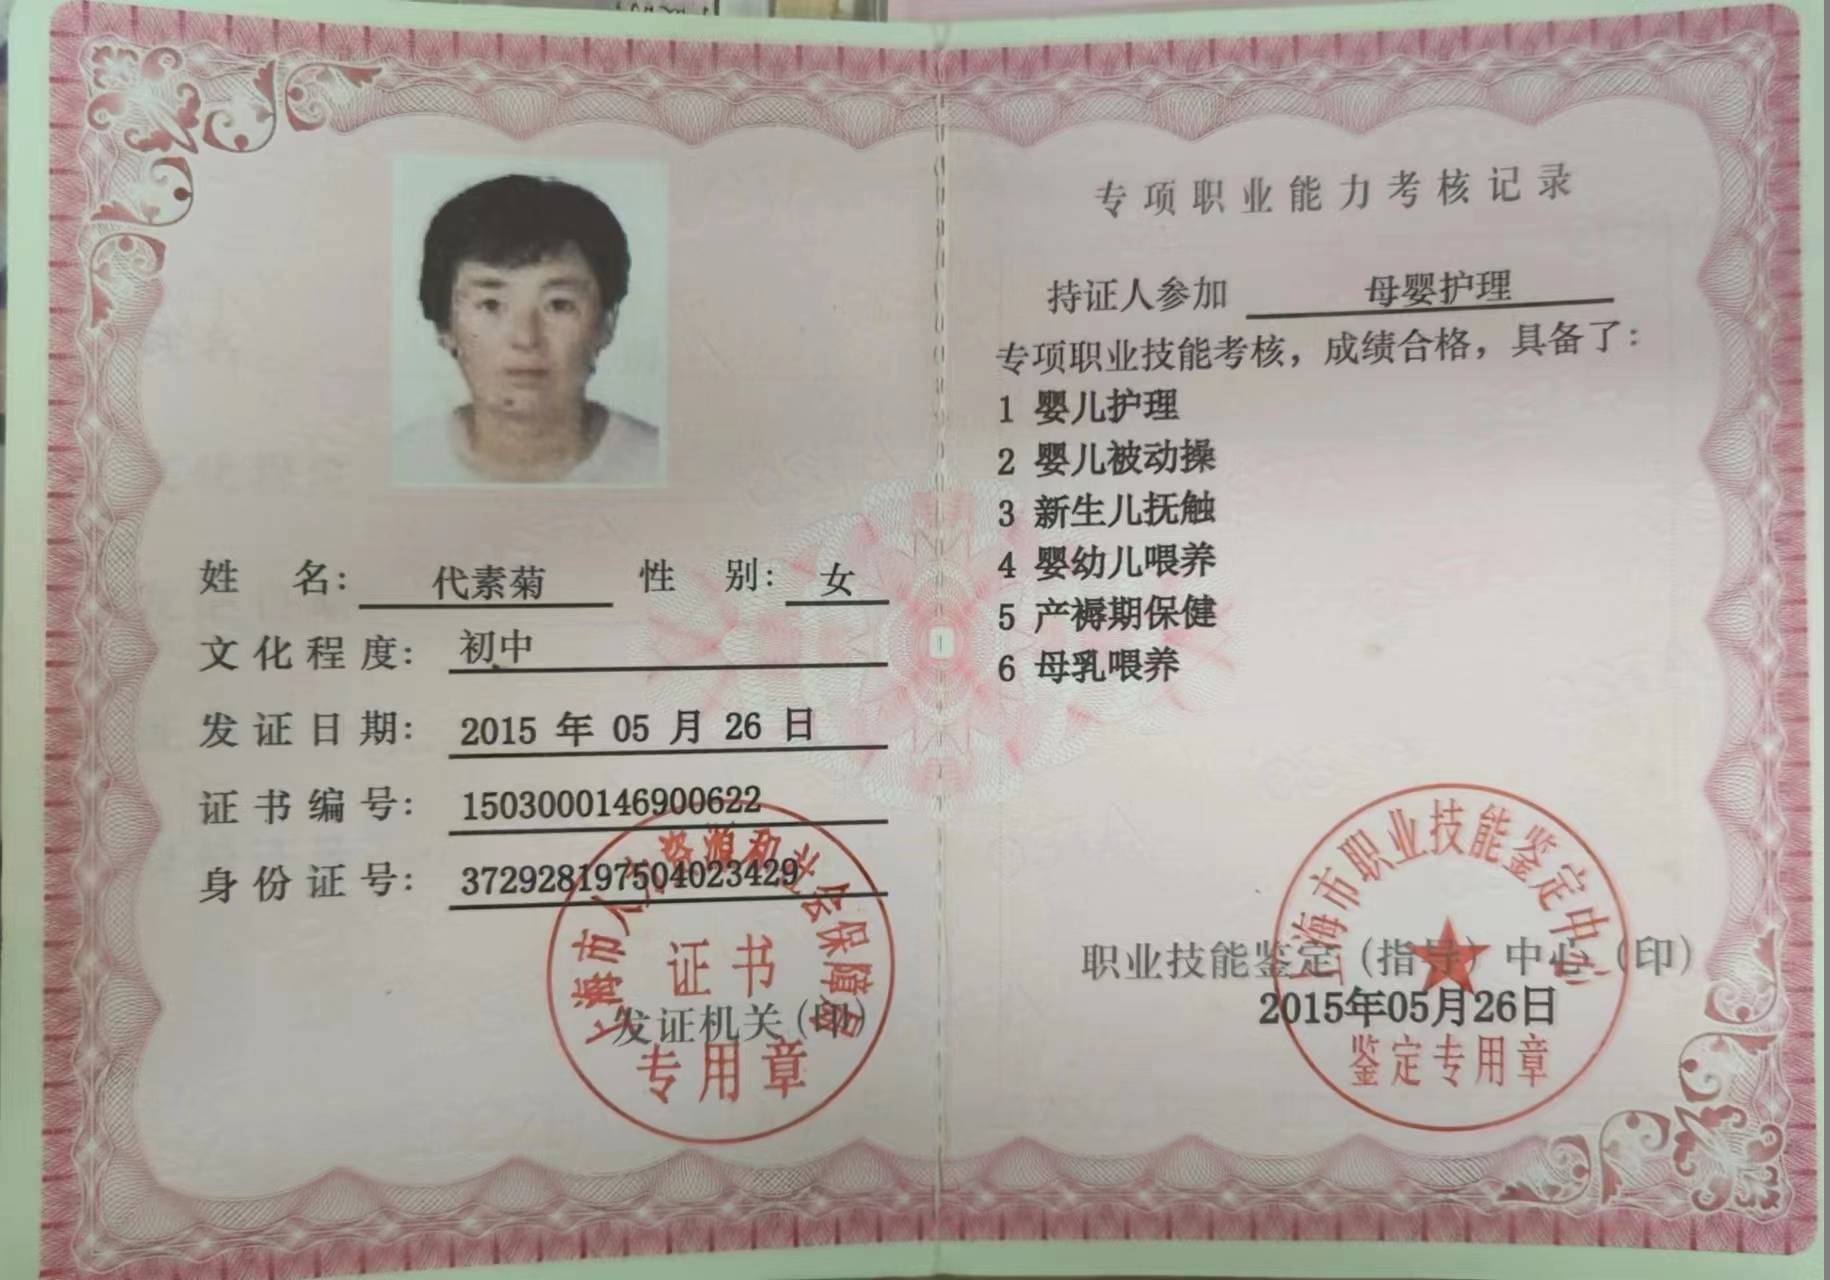 姓 名: 代素菊 性 别: 女
文化程度: 初中
发证日期: 2015 年 05 月 26 日
证书编号: 1503000146900622
身份证号: 372928197504023429
上海市人力资源和社会保障局
证书
发证机关(印)
专用章
专项职业能力考核记录
持证人参加 母婴护理
专项职业技能考核，成绩合格，具备了：
1 婴儿护理
2 婴儿被动操
3 新生儿抚触
4 婴幼儿喂养
5 产褥期保健
6 母乳喂养
上海市职业技能鉴定中心
职业技能鉴定（指导）中心（印）
2015年05月26日
鉴定专用章